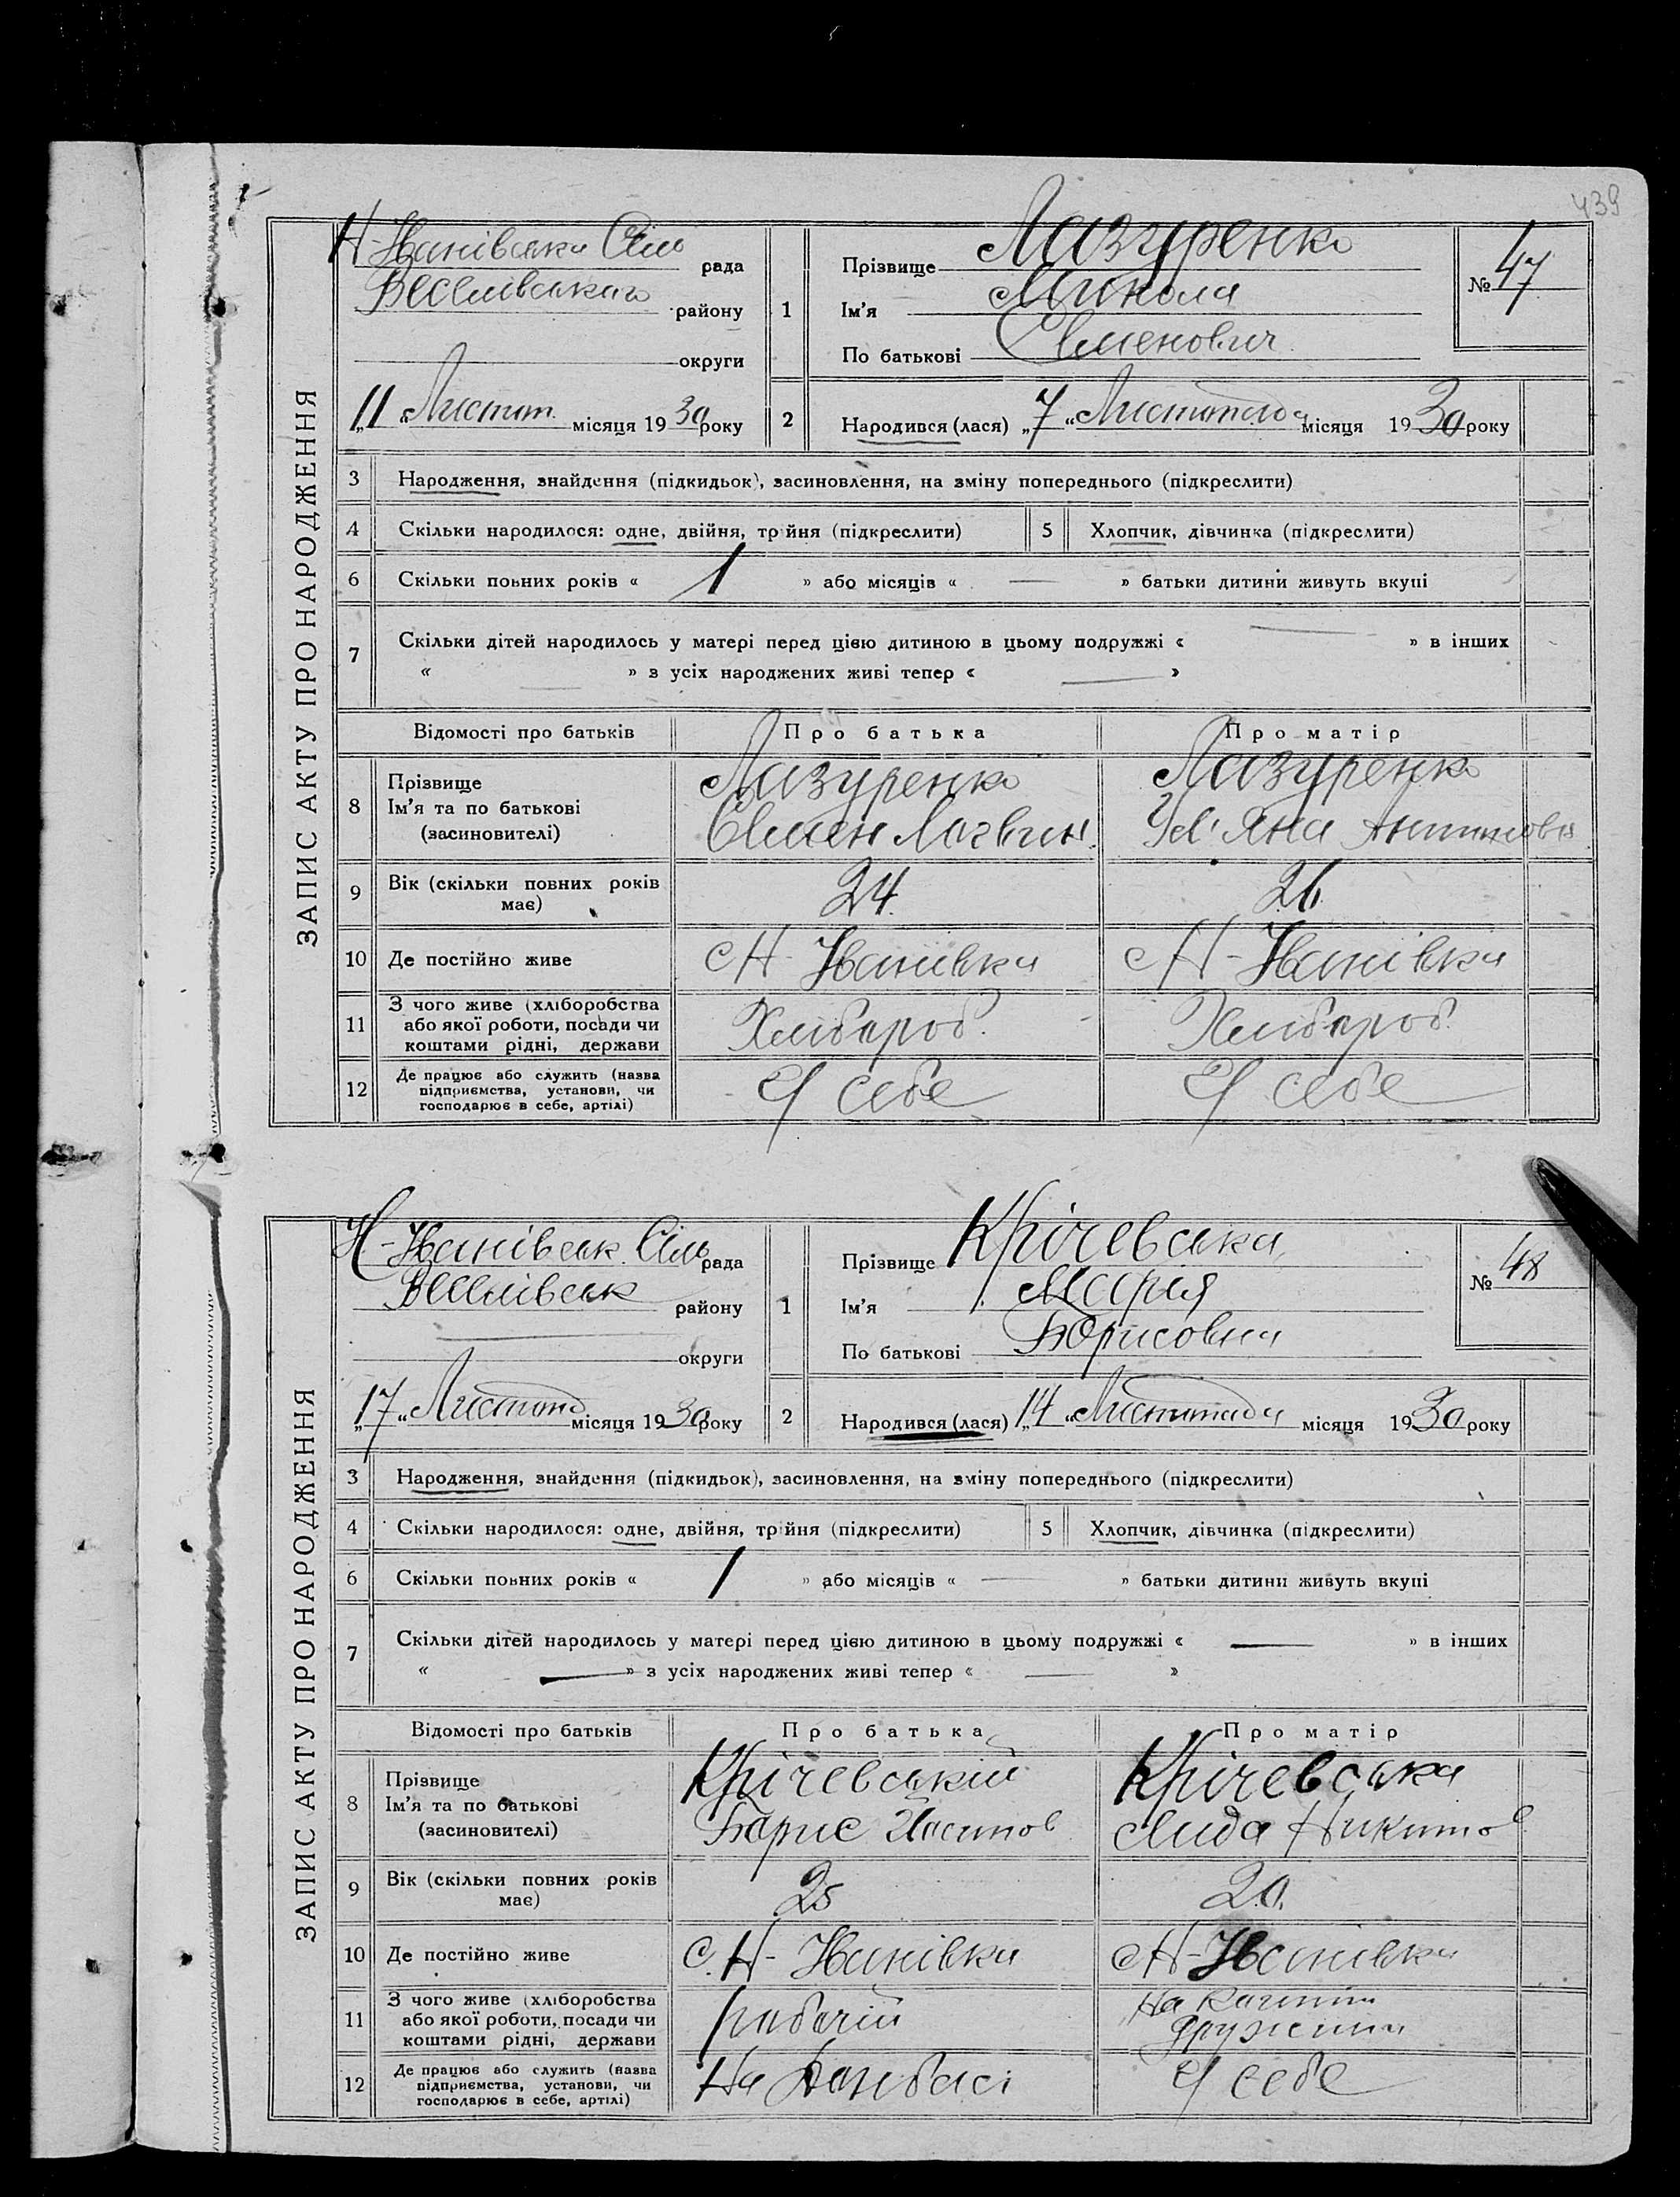 439
ЗАПИС АКТУ ПРО НАРОДЖЕННЯ
Н-Іванівська Сіль рада
Веселівського району
округи
„11“ Листоп. місяця 1930 року
1
Прізвище Лазуренко
Ім'я Микола
По батькові Семенович
№ 47
2 Народився (лася) „7“ Листопада місяця 1930 року
3 Народження, знайдення (підкидьок), засиновлення, на зміну попереднього (підкреслити)
4 Скільки народилося: одне, двійня, трійня (підкреслити) 5 Хлопчик, дівчинка (підкреслити)
6 Скільки повних років « 1 » або місяців « — » батьки дитини живуть вкупі
7 Скільки дітей народилось у матері перед цією дитиною в цьому подружжі « — » в інших
« — » з усіх народжених живі тепер « — »
Відомості про батьків Про батька Про матір
8 Прізвище Ім'я та по батькові (засновителі)
Лазуренко Лазуренко
Семен Логвин. Ул'яна
9 Вік (скільки повних років має) 24. 26
10 Де постійно живе с Н-Іванівка с Н-Іванівка
11 З чого живе (хліборобства або якої роботи, посади чи коштами рідні, держави Хлібороб. Хлібороб.
12 Де працює або служить (назва підприємства, установи, чи господарює в себе, артілі) У себе У себе
ЗАПИС АКТУ ПРО НАРОДЖЕННЯ
Н-Іванівськ. Сіль рада
Веселівськ району
— округи
„17“ Листопад місяця 1930 року
1
Прізвище Крічевська
Ім'я Марія
По батькові Борисовна
№ 48
2 Народився (лася) „14“ Листопада місяця 1930 року
3 Народження, знайдення (підкидьок), засиновлення, на зміну попереднього (підкреслити)
4 Скільки народилося: одне, двійня, трійня (підкреслити) 5 Хлопчик, дівчинка (підкреслити)
6 Скільки повних років « 1 » або місяців « — » батьки дитини живуть вкупі
7 Скільки дітей народилось у матері перед цією дитиною в цьому подружжі « — » в інших
« — » з усіх народжених живі тепер « — »
Відомості про батьків Про батька Про матір
8 Прізвище Ім'я та по батькові (засиновителі)
Крічевській Крічевська
Борис Лида Никитов
9 Вік (скільки повних років має) 25 20.
10 Де постійно живе с. Н-Іванівка с Н-Іванівка
11 З чого живе (хліборобства або якої роботи, посади чи коштами рідні, держави рабочій На дружини
12 Де працює або служить (назва підприємства, установи, чи господарює в себе, артілі) На Донбасі У себе